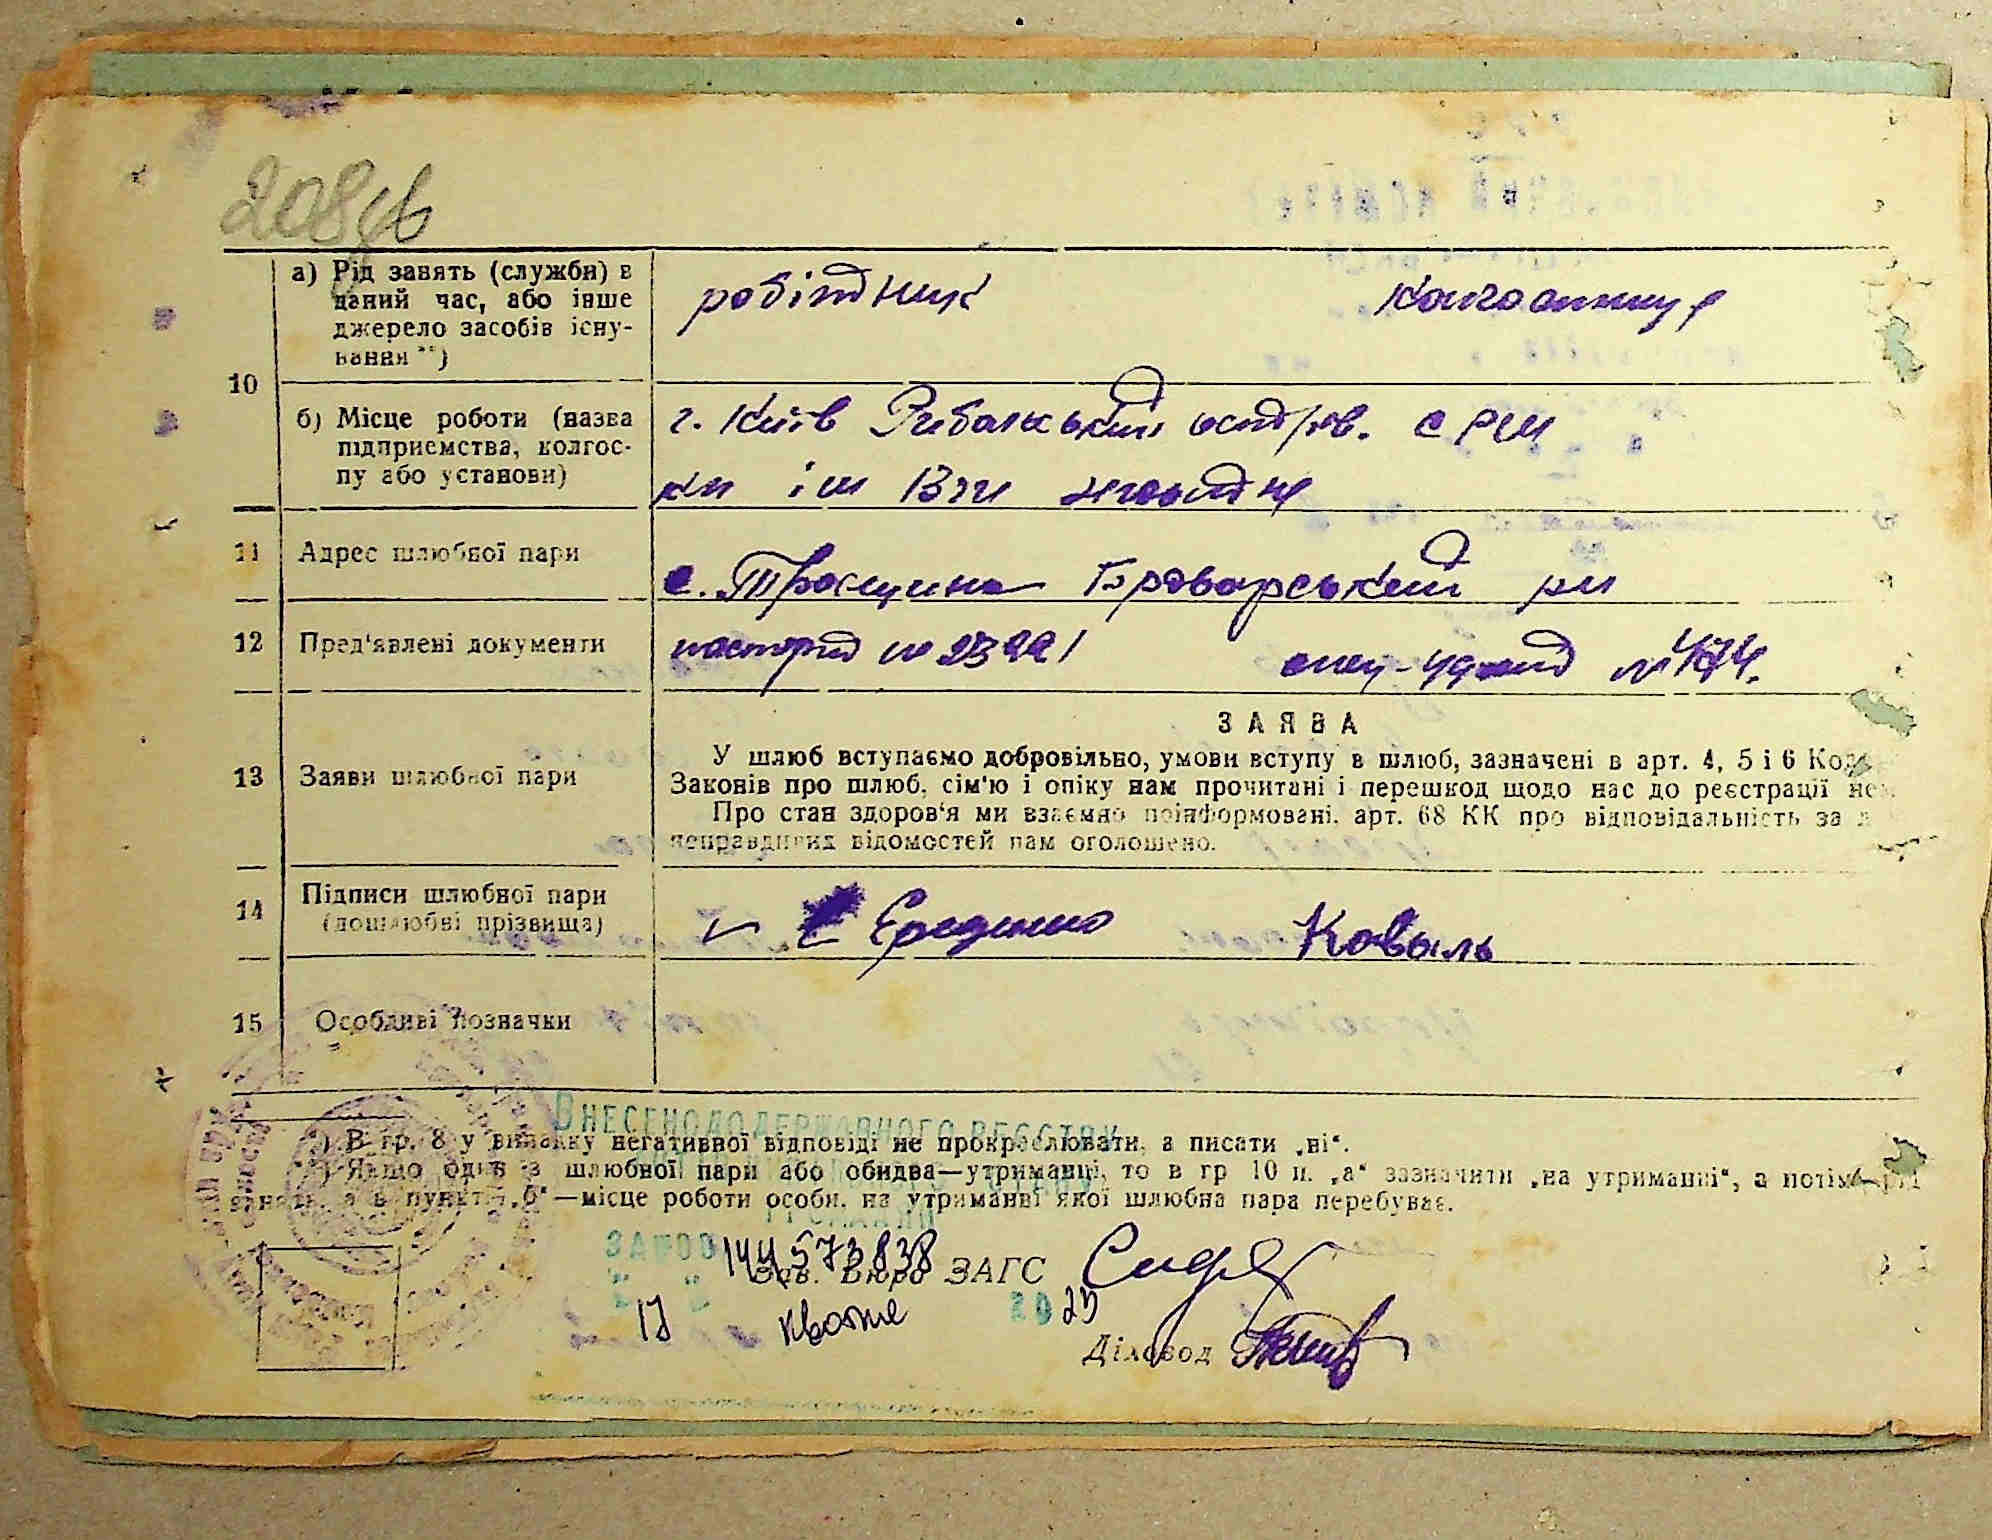 208 зв
а) Рід занять (служби) в
даний час, або інше
джерело засобів існу-
вання **)
робітник
колгоспниця
10
б) Місце роботи (назва
підприємства, колгос-
пу або установи)
г. Київ Рибальський острів.
11
Адрес шлюбної пари
с. Троєщина Броварський рн
12
Пред'явлені документи
паспорт №
№ 474.
ЗАЯВА
13
Заяви шлюбної пари
У шлюб вступаємо добровільно, умови вступу в шлюб, зазначені в арт. 4, 5 і 6
Законів про шлюб, сім'ю і опіку нам прочитані і перешкод щодо нас до реєстрації
Про стан здоров'я ми взаємно поінформовані, арт. 68 КК про відповідальність за
неправдивих відомостей нам оголошено.
14
Підписи шлюбної пари
(дошлюбні прізвища)
Коваль
15
Особливі позначки
ВНЕСЕНО ДО ДЕРЖАВНОГО РЕЄСТРУ
*) В гр. 8 у випадку негативної відповіді не прокреслювати, а писати „ні“.
**) Якщо один з шлюбної пари або обидва—утриманці, то в гр 10 п. „а“ зазначити „на утриманні“, а потім
в пункті „б“—місце роботи особи, на утриманні якої шлюбна пара перебуває.
ГРОМАДЯН
ЗА № 00144573838
Зав. Бюро ЗАГС
17 квітня 2025
Діловод